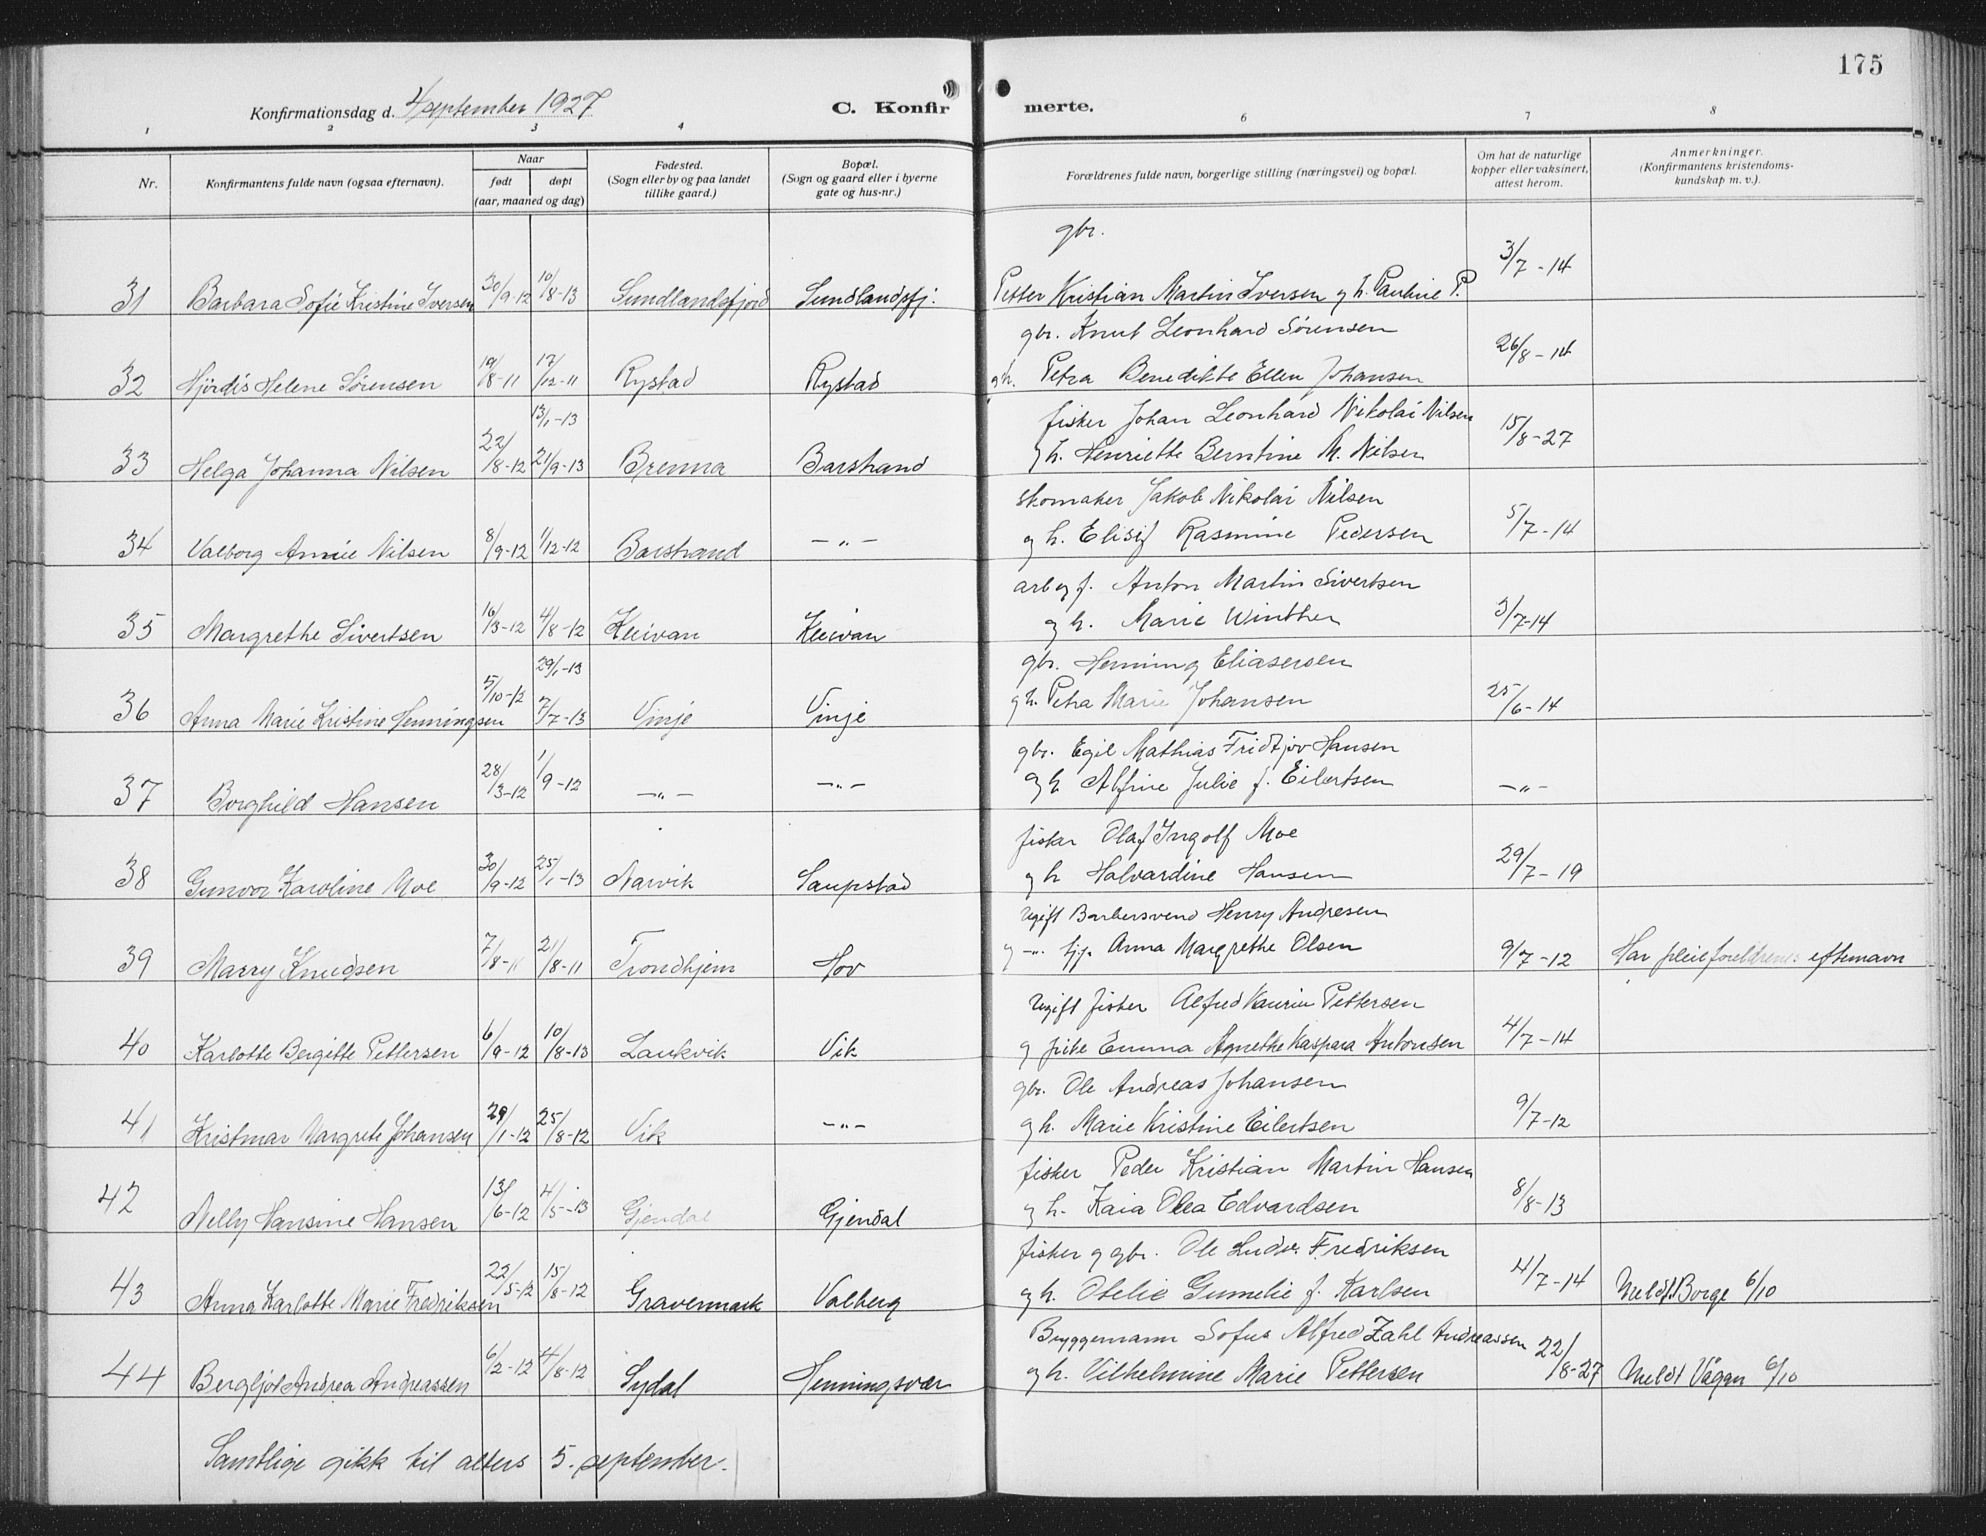 175
Konfirmationsdag d. 4 september 1927
C. Konfirmerte.
1 2 3 4 6 7 8
Nr.
Konfirmantens fulde navn (ogsaa efternavn).
Naar
født
døpt
(aar, maaned og dag)
Fødested.
(Sogn eller by og paa landet
tillike gaard.)
Bopæl.
(Sogn og gaard eller i byerne
gate og hus-nr.)
Forældrenes fulde navn, borgerlige stilling (næringsvei) og bopæl.
Om hat de naturlige
kopper eller vaksinert,
attest herom.
Anmerkninger.
(Konfirmantens kristendoms-
kundskap m. v.).
gbr.
31 Barbara Sofie Kristine Iversen 30/9-12 10/8-13 Sundlandsfjord Sundlandsfj. Petter Kristian Martin Iversen og h. Pauline P. 3/7-14
gbr. Knut Leonhard Sørensen
32 Hjördis Helene Sørensen 19/8-11 17/12-11 Rystad Rystad og h. Petra Benedikte Ellen Johansen 26/8-14
13/1-13 fisker Johan Leonhard Nikolai Nilsen
33 Helga Johanna Nilsen 22/8-12 21/9-13 Brenna Barstrand og h. Henriette Berntine M. Nilsen 15/8-27
skomaker Jakob Nikolai Nilsen
34 Valborg Annie Nilsen 8/9-12 1/12-12 Barstrand -"- og h. Elisif Rasmine Pedersen 5/7-14
arb og f. Anton Martin Sivertsen
35 Margrethe Sivertsen 16/3-12 4/8-12 Kleivan Kleivan og h. Marie Winther 3/7-14
29/1-13 gbr. Henning Eliasersen
36 Anna Marie Kristine Henningsen 5/10-12 7/7-13 Vinje Vinje og h. Petra Marie Johansen 25/6-14
gbr. Egil Mathias Fridtjov Hansen
37 Borghild Hansen 28/3-12 1/9-12 -"- -"- og h. Alfine Julie f. Eilertsen -"-
fisker Olaf Ingolf Moe
38 Gunvor Karoline Moe 30/9-12 25/1-13 Narvik Saupstad og h Halvardine Hansen 29/7-19
Ugift Barbersvend Henry Andresen
39 Marry Knudsen 7/8-11 21/8-11 Trondhjem Hov og -"- tjp. Anna Margrethe Olsen 9/7-12 Har pleieforeldrenes efternavn
Ugift fisker Alfred Kaurin Pettersen
40 Karlotte Bergitte Pettersen 6/9-12 10/8-13 Laukvik Vik og pike Emma Agnethe Kaspara Antonsen 4/7-14
gbr. Ole Andreas Johansen
41 Kristmar Margrete Johansen 29/1-12 25/8-12 Vik -"- og h. Marie Kristine Eilertsen 9/7-12
fisker Peder Kristian Martin Hansen
42 Nelly Hansine Hansen 13/6-12 4/5-13 Gjendal Gjendal og h. Kaia Olea Edvardsen 8/8-13
fisker og gbr. Ole Ludv. Fredriksen
43 Anna Karlotte Marie Fredriksen 22/5-12 15/8-12 Gravermark Valberg og h. Otelie Gunelie f. Karlsen 4/7-14 Meldt Borge 6/10
Bryggemann Sofus Alfred Zahl Andreassen
44 Bergljot Andrea Andreassen 6/2-12 4/8-12 Sydal Henningsvær og h. Vilhelmine Marie Pettersen 22/8-27 Meldt Vågan 6/10
Samtlige gikk til alters 5. september.